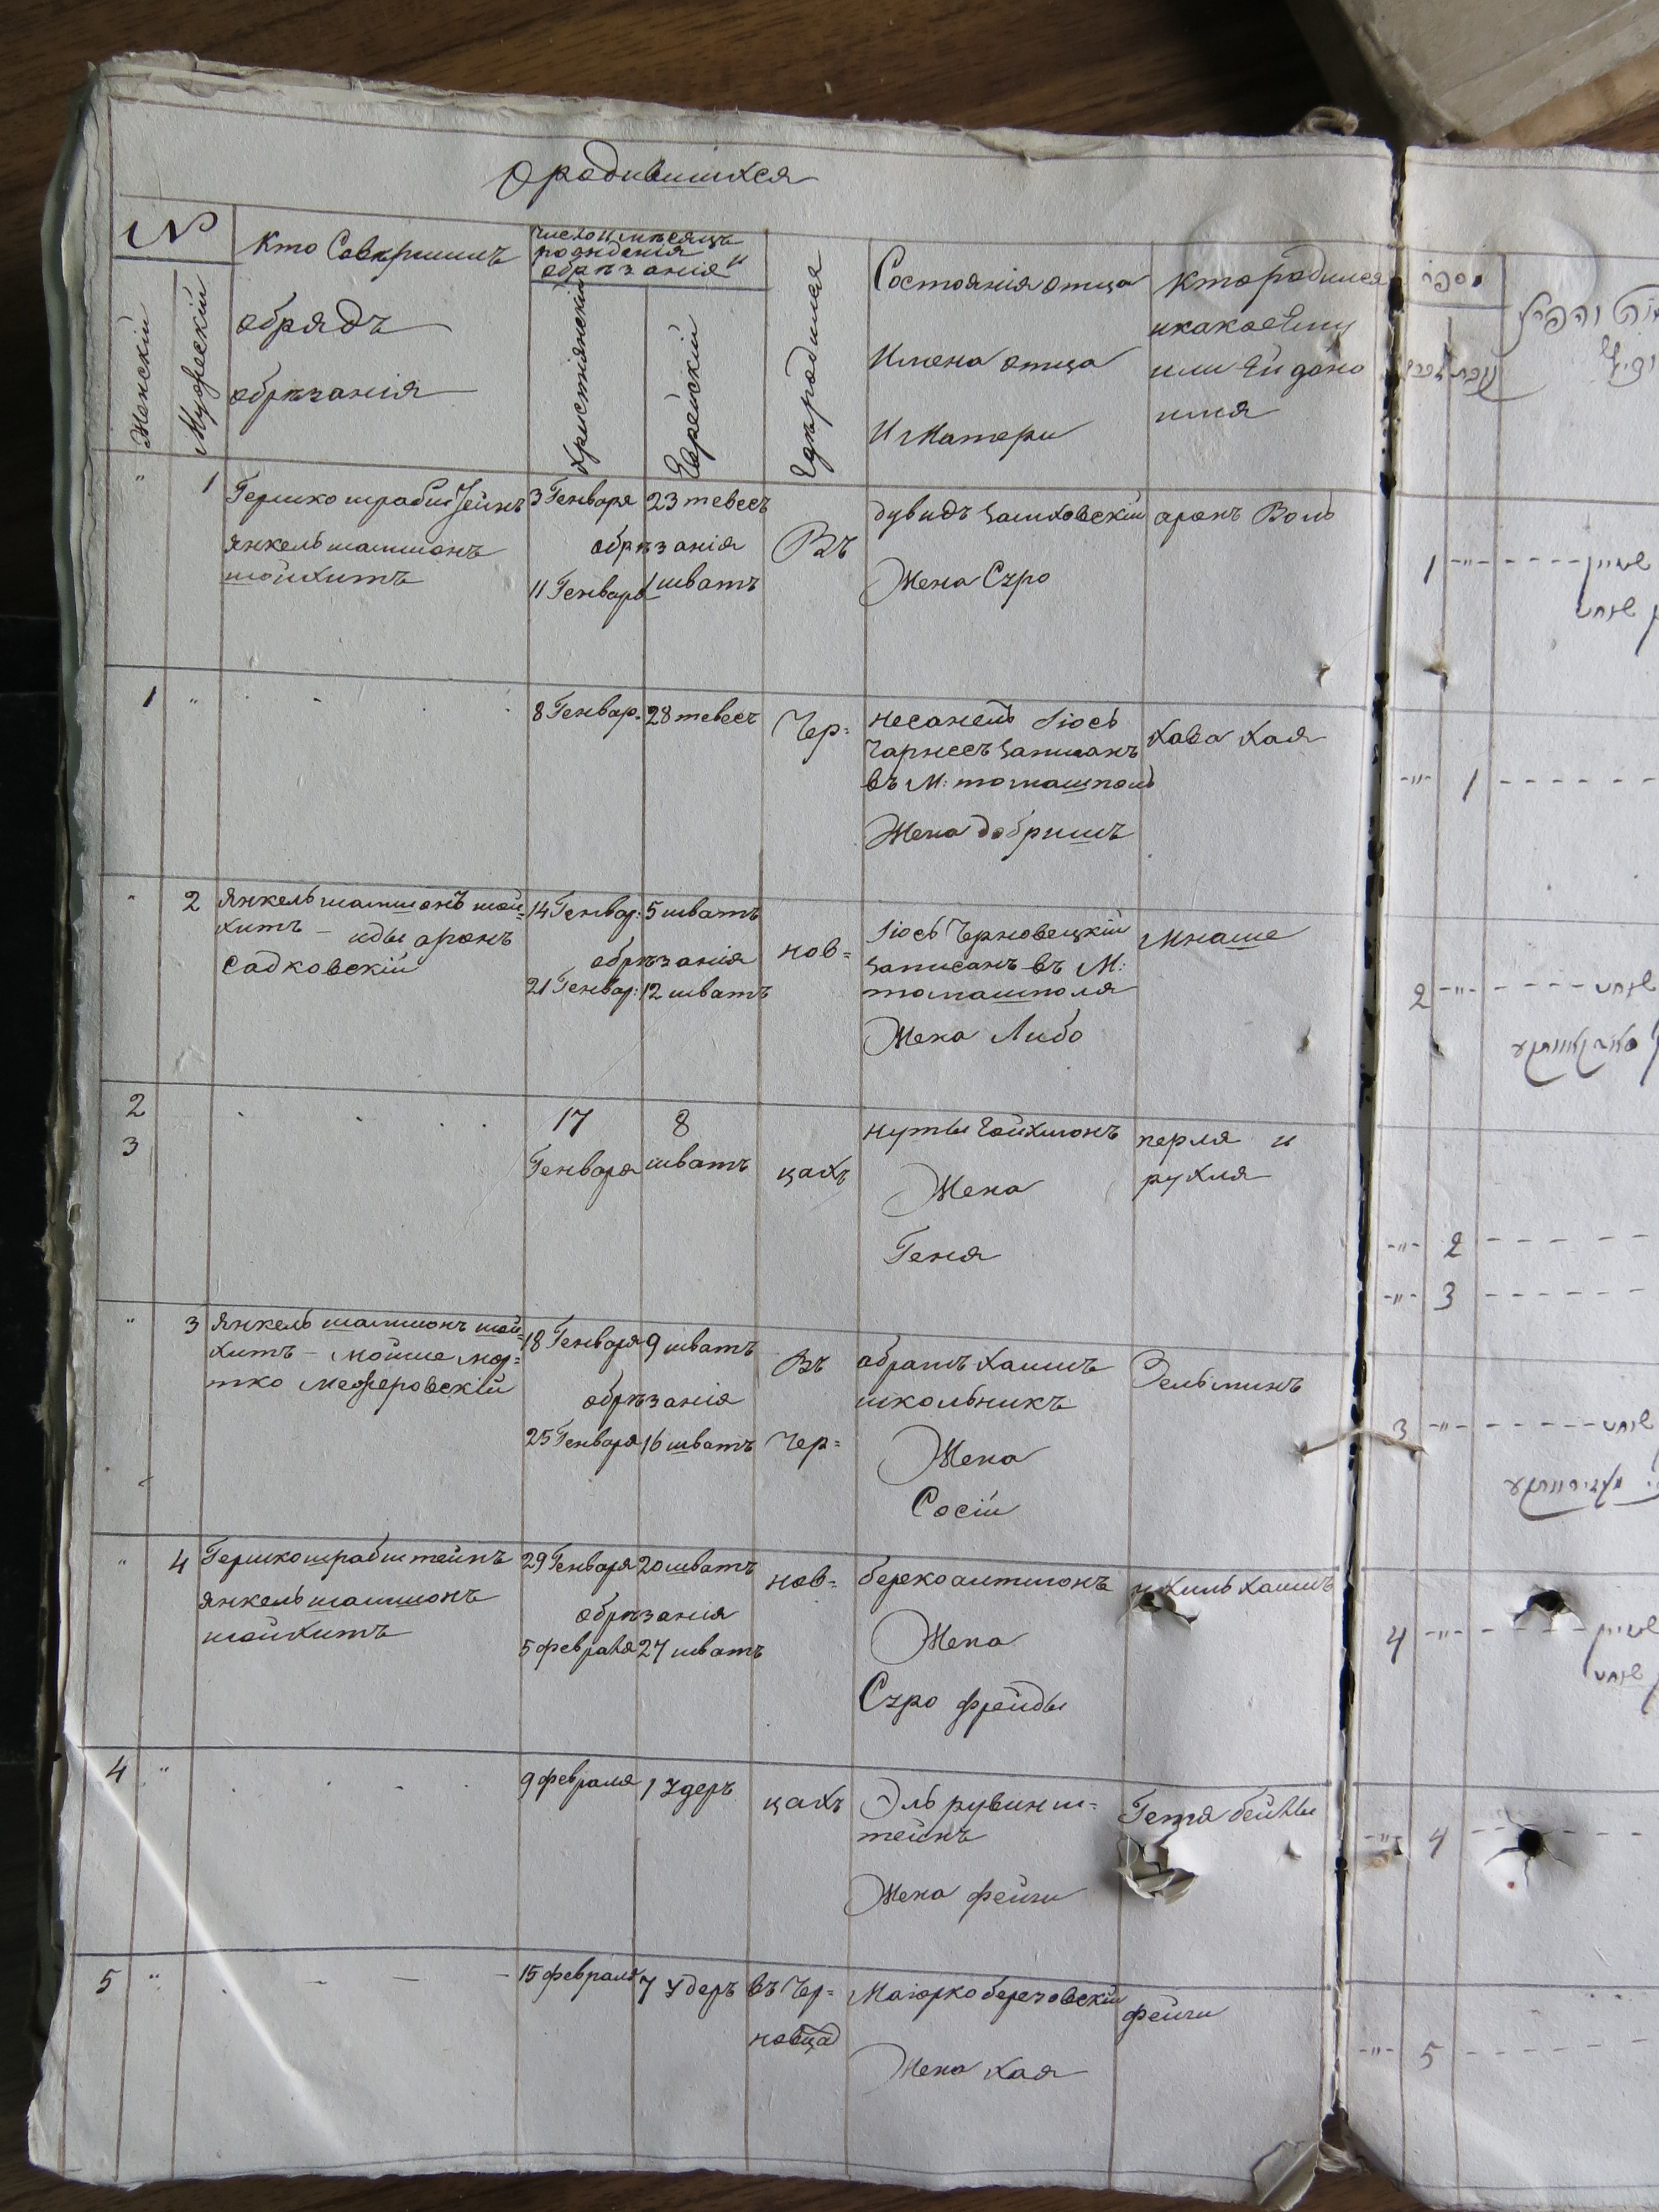 О родившихся
№
Женскій
Мужескій
Кто Совершилъ
обрядъ
обрѣзанія
число и мѣсяцъ
рожденія и
обрѣзанія
Христіянскій
Еврейскій
Гдѣ родился
Состоянія отца
Имена отца
И Матери
Кто родился
и какое Ему
или Ей дано
имя
" 1
Гершко штрабштейнъ
янкель шапшонъ
шойхитъ
3 Генваря 23 тевесъ
обрѣзанія
11 Генваря 1 шватъ
Въ
дувидъ
Жена Сура
аронъ Воль
1 "
8 Генвар. 28 тевесъ
Чер=
несанель Іюсь
Чарнесъ записанъ
въ М: томашполь
Жена добришъ
Хава Хая
" 2
янкель шапшонъ шой=
хитъ – иды аронъ
Садковскій
14 Генвар: 5 шватъ
обрѣзанія
21 Генвар: 12 шватъ
нов=
Іюсь Черновецкій
записанъ въ М:
томашполя
Жена Либа
Мнаше
2
3
17 8
Генваря шватъ
цахъ
нуты Гойхманъ
Жена
Геня
перля и
рухля
" 3
янкель шапшонъ шой=
хитъ – мойше мор=
тко межеровскій
18 Генваря 9 шватъ
обрѣзанія
25 Генваря 16 шватъ
Въ
Чер=
абрамъ хаимъ
школьникъ
Жена
Сосіи
Зельминъ
" 4
Гершко штрабштейнъ
янкель шапшонъ
шойхитъ
29 Генваря 20 шватъ
обрѣзанія
5 февраля 27 шватъ
нов=
берко
Жена
Сура фрейды
хаимъ
4 "
9 февраля 1 Удеръ
цахъ
Эль рувинш=
тейнъ
Жена фейги
Гетя бейлы
5 " – – –
15 февраля 7 Удеръ
въ Чер=
новца
Маіорко березовскій
Жена Хая
фейги
1 -"-
-"- 1
2 -"-
-"- 2
-"- 3
3 -"-
4 -"-
-"- 4
-"- 5